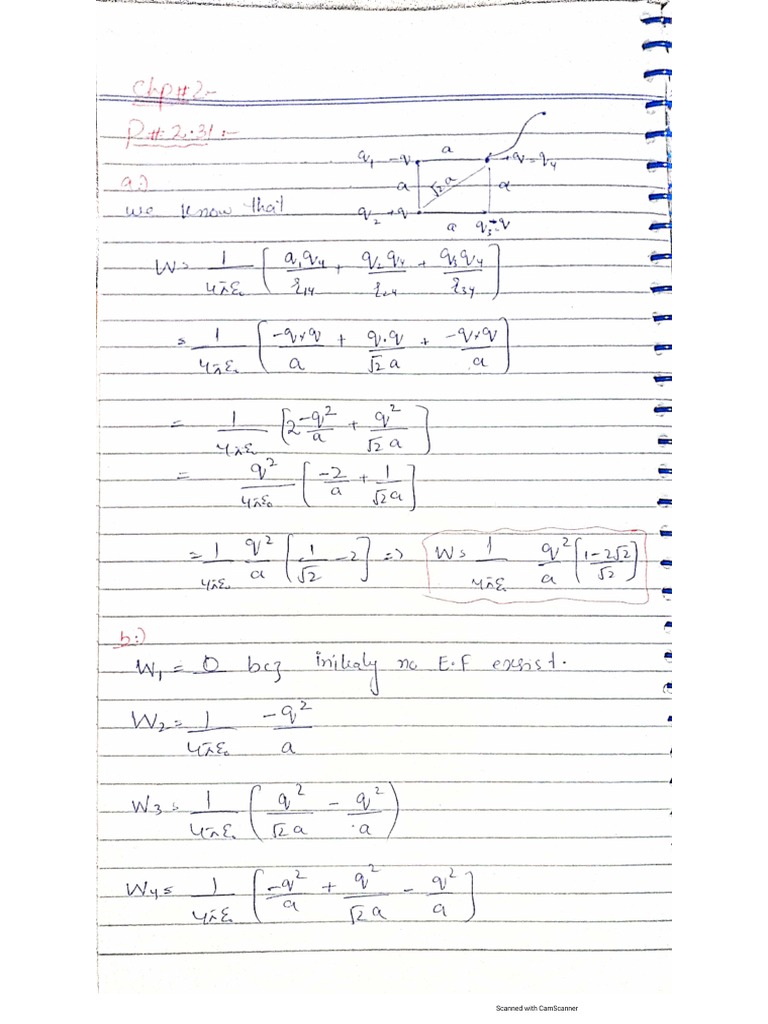 Chp# 2:-
P#: 2.31:-
a:)
a
q₁ -q +q=q₄
a √2 a a
we know that q₂ +q
a q₃=-q
W= 1/4πε₀ [a₁q₄/r₁₄ + q₂q₄/r₂₄ + q₃q₄/r₃₄]
= 1/4πε₀ [-q×q/a + q.q/√2 a + -q×q/a]
= 1/4πε₀ [2 -q²/a + q²/√2 a]
= q²/4πε₀ [-2/a + 1/√2 a]
= 1/4πε₀ q²/a [1/√2 - 2] => W= 1/4πε₀ q²/a [1-2√2/√2]
b:)
W₁ = 0 bcz initialy no E.F exsist.
W₂= 1/4πε₀ -q²/a
W₃= 1/4πε₀ (q²/√2 a - q²/a)
W₄= 1/4πε₀ [-q²/a + q²/√2 a - q²/a]
Scanned with CamScanner